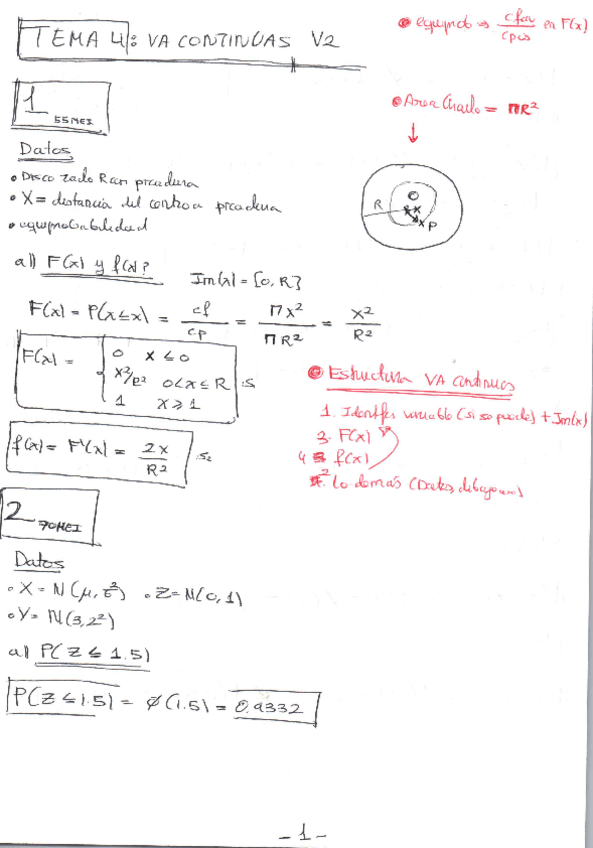 TEMA 4: VA CONTINUAS V2
equiprob ⇒ cfav/cpos en F(x)
1 55MEI
Area Circulo = πR²
Datos
• Disco radio R con picadura
• X = distancia del centro a picadura
• equiprobabilidad
O
R
x
P
a) F(x) y f(x)?
Im(x) = [0, R]
F(x) = P(X ≤ x) = cf/cp = πx²/πR² = x²/R²
F(x) = { 0 x ≤ 0
x²/R² 0 < x ≤ R
1 x ≥ 1
Estructura VA continuas
1. Identifcr variable (si se puede) + Im(x)
3. F(x)
4 f(x)
2 Lo demás (Datos, dibujo...)
f(x) = F'(x) = 2x/R²
2 70MEI
Datos
• X = N(μ, σ²) • Z = N(0, 1)
• Y = N(3, 2²)
a) P(Z ≤ 1.5)
P(Z ≤ 1.5) = ϕ(1.5) = 0.9332
- 1 -